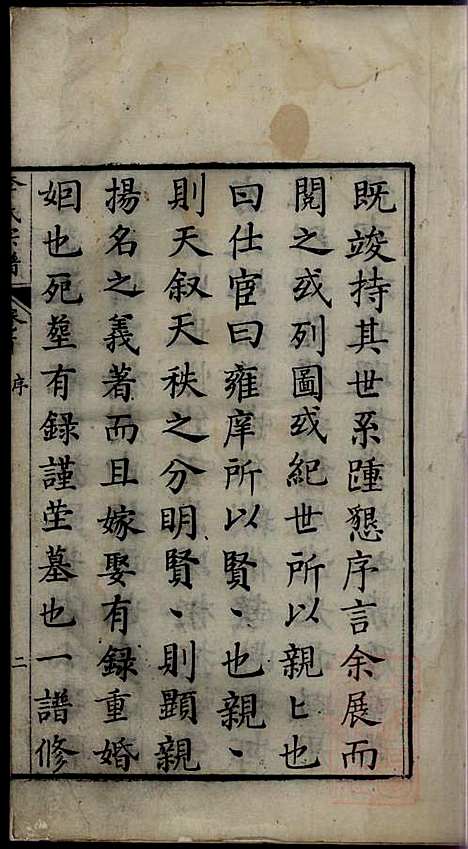 既竣持其世系踵懇序言余展而
閱之或列圖或紀世所以親匕也
曰仕宦曰雍庠所以賢、也親、
則天叙天秩之分明賢、則顯親
揚名之義著而且嫁娶有録重婚
姻也死塟有録謹茔墓也一譜修
氏宗譜
序
二